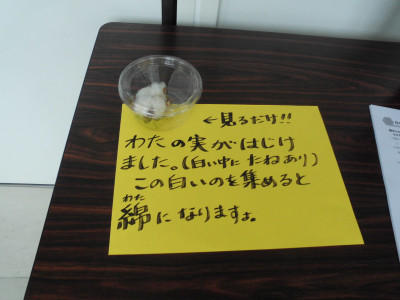 ←見るだけ!!
わたの実がはじけ
ました。(白い中にたねあり)
この白いのを集めると
わた
綿になりますよ。